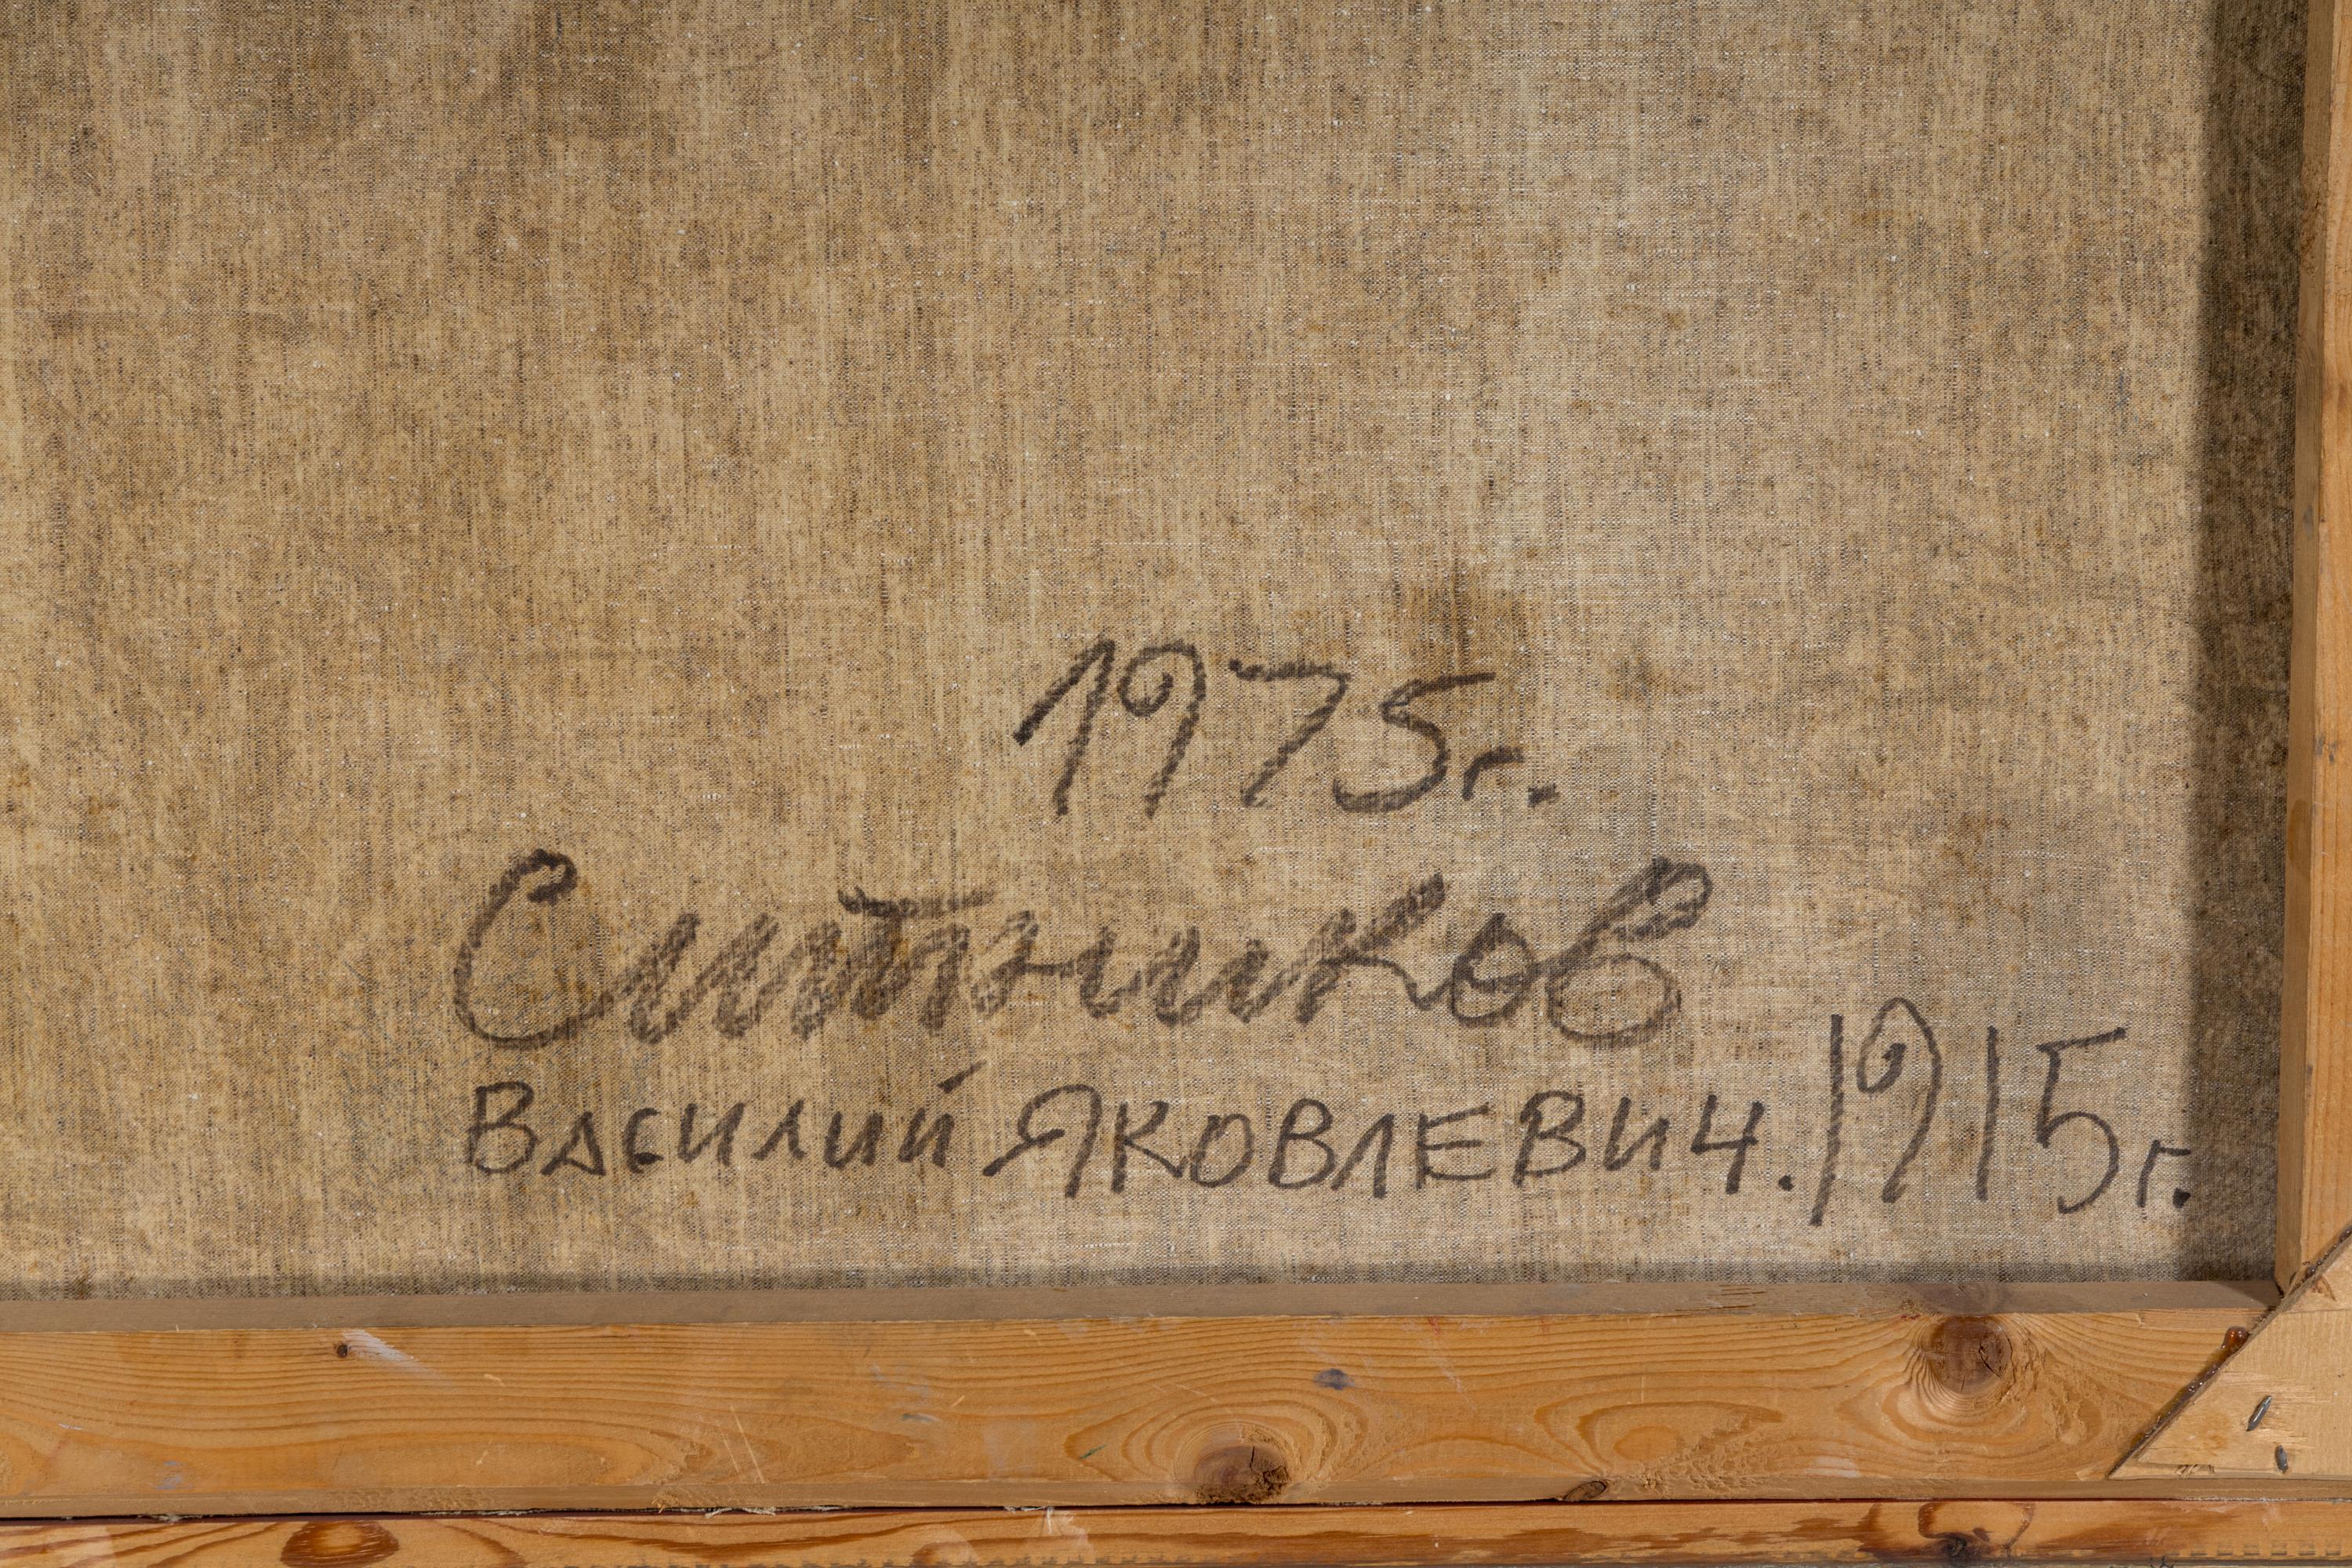 1975г.
Ситников
Василий Яковлевич. 1915г.